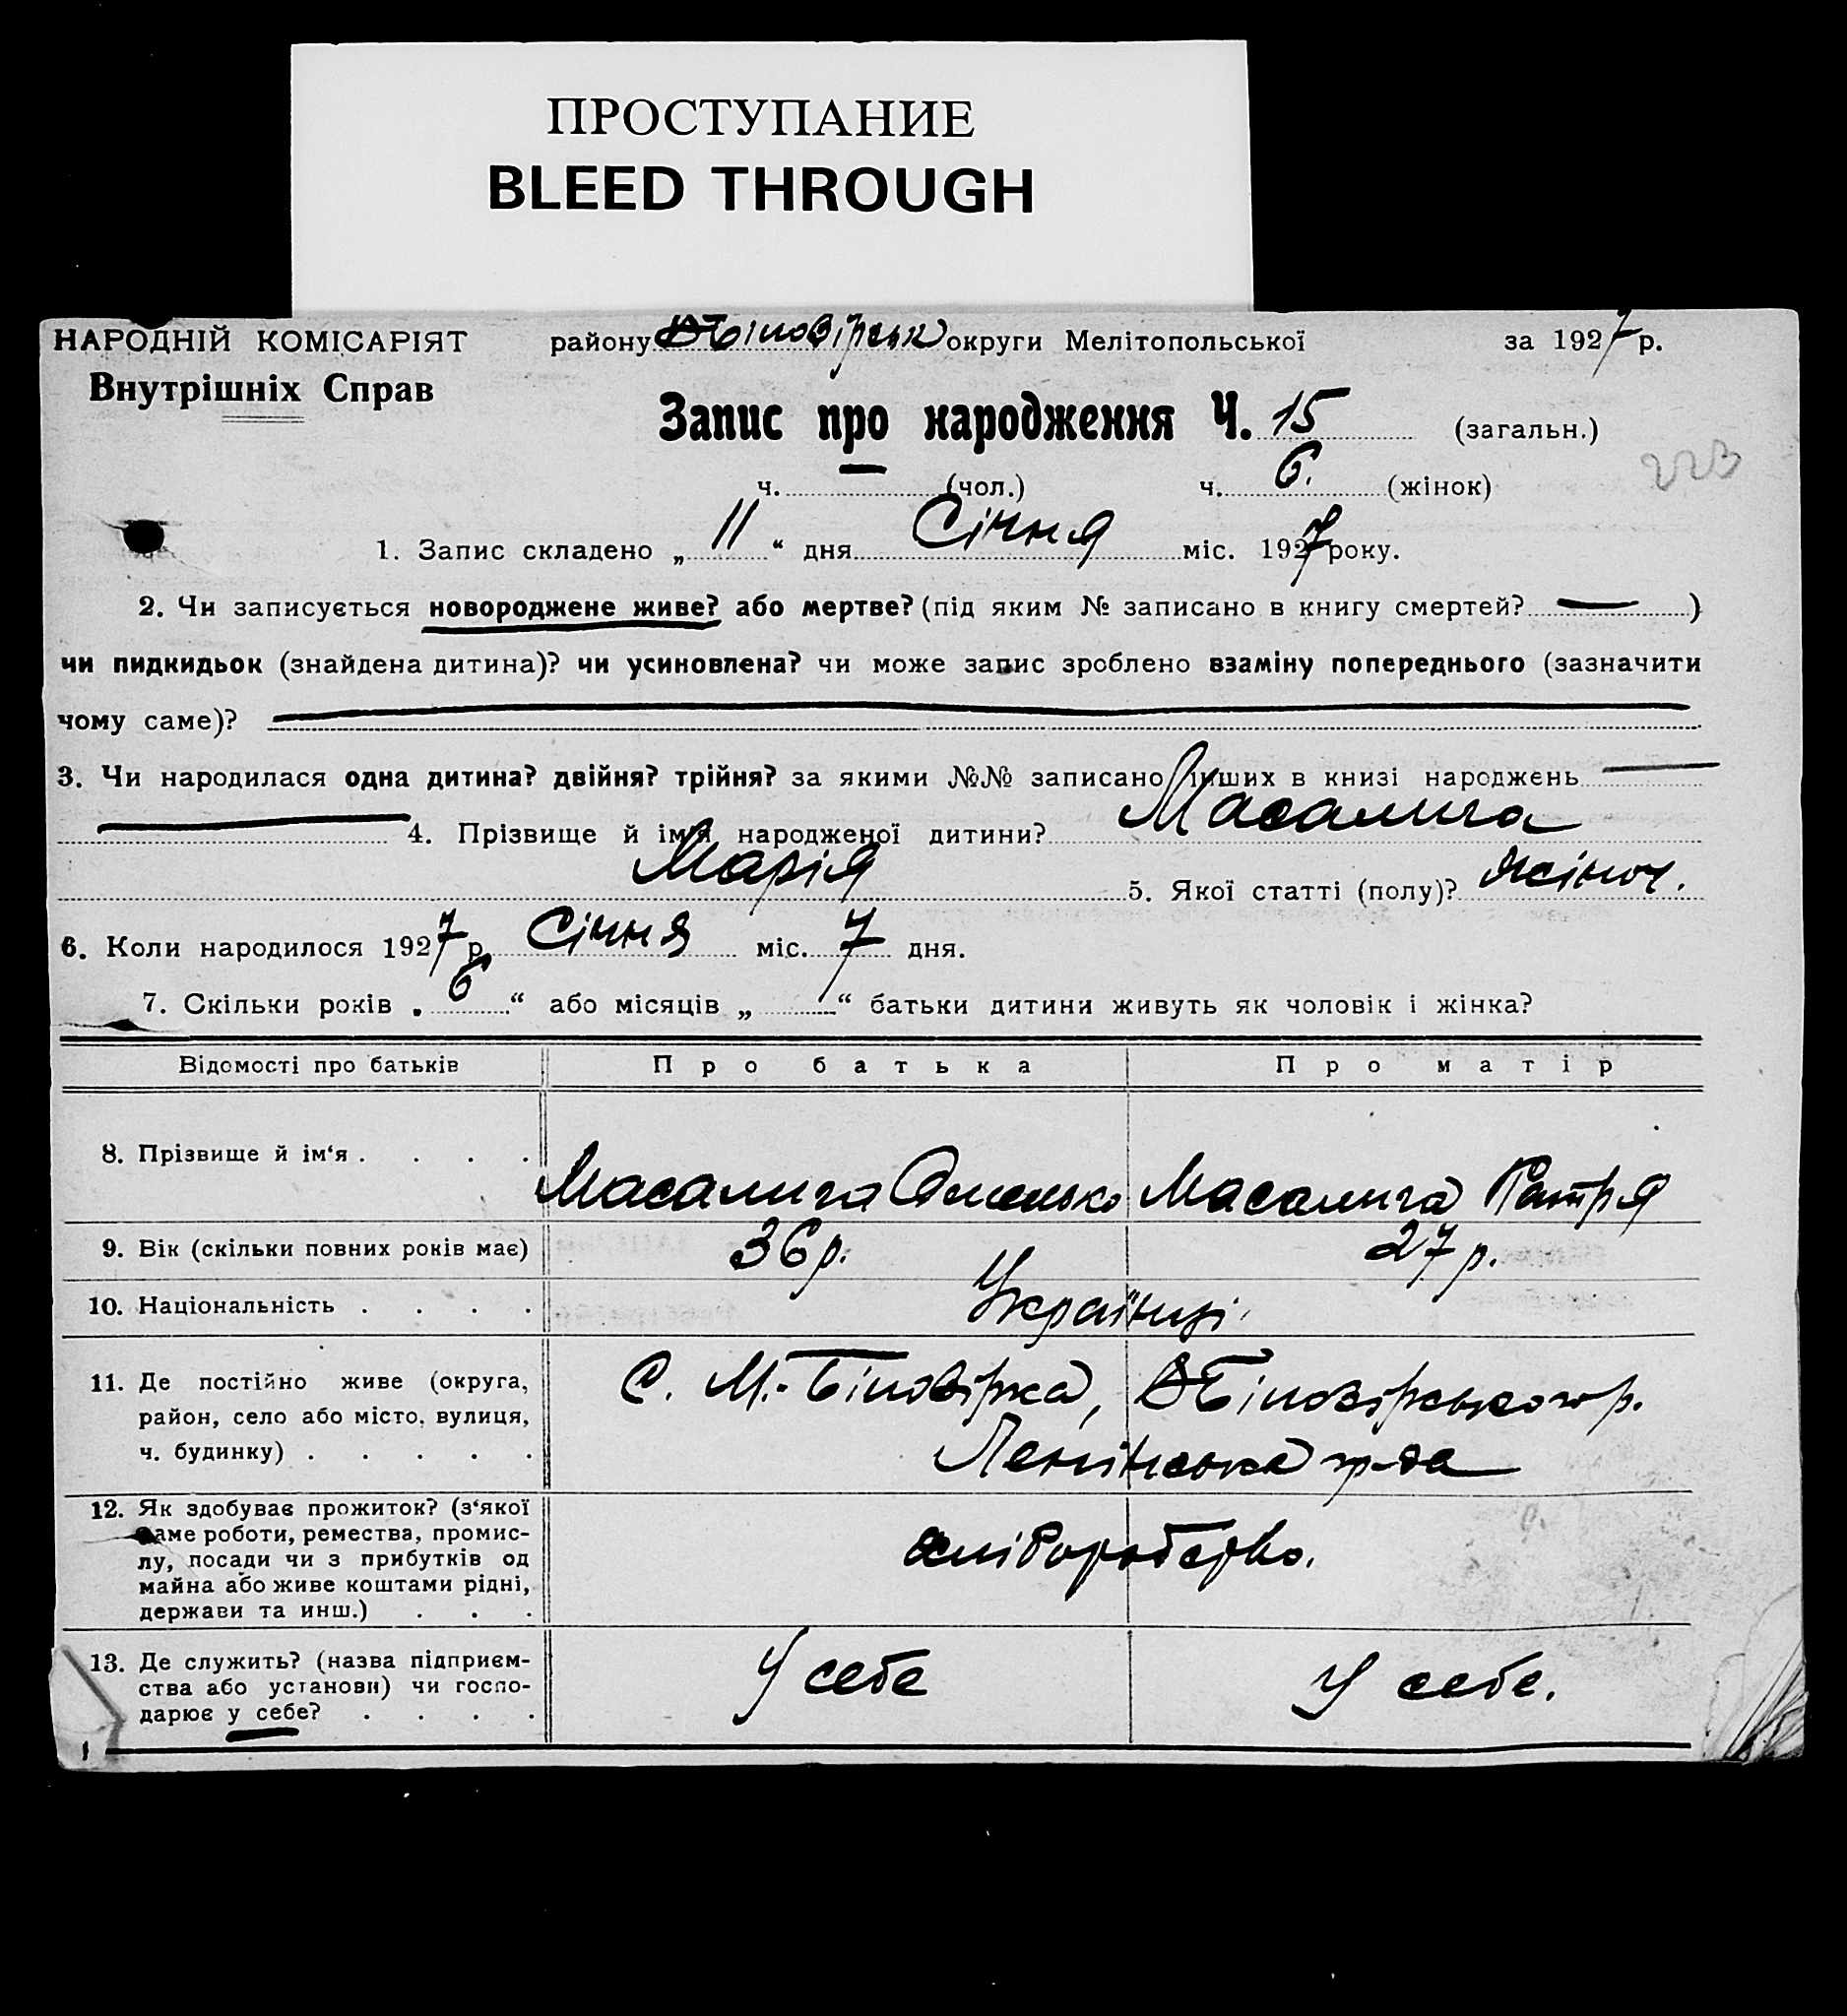 ПРОСТУПАНИЕ
BLEED THROUGH
НАРОДНІЙ КОМІСАРІЯТ району Біловірськ округи Мелітопольської за 1927 р.
Внутрішніх Справ
Запис про народження Ч. 15 (загальн.)
223
ч. — (чол.) ч. 6. (жінок)
1. Запис складено „11“ дня Січня міс. 1927 року.
2. Чи записується новороджене живе? або мертве? (під яким № записано в книгу смертей? —)
чи пидкидьок (знайдена дитина)? чи усиновлена? чи може запис зроблено взаміну попереднього (зазначити
чому саме)?
3. Чи народилася одна дитина? двійня? трійня? за якими №№ записано інших в книзі народжень —
— 4. Прізвище й ім'я народженої дитини? Масалига
Марія 5. Якої статті (полу)? жіноч.
6. Коли народилося 1927 р. Січня міс. 7 дня.
7. Скільки років „6“ або місяців „ “ батьки дитини живуть як чоловік і жінка?
Відомості про батьків Про батька Про матір
8. Прізвище й ім‘я . . . . Масалига Омелько Масалига Патря
9. Вік (скільки повних років має) 36 р. 27 р.
10. Національність . . . . Українці
11. Де постійно живе (округа,
район, село або місто, вулиця,
ч. будинку) . . . . .
С. М.-Біловірка, Біловірського р.
Ленінська
12. Як здобуває прожиток? (з‘якої
саме роботи, ремества, промис-
лу, посади чи з прибутків од
майна або живе коштами рідні,
держави та инш.) . . .
хліборобство.
13. Де служить? (назва підприєм-
ства або установи) чи госпо-
дарює у себе? . . . .
У себе У себе.